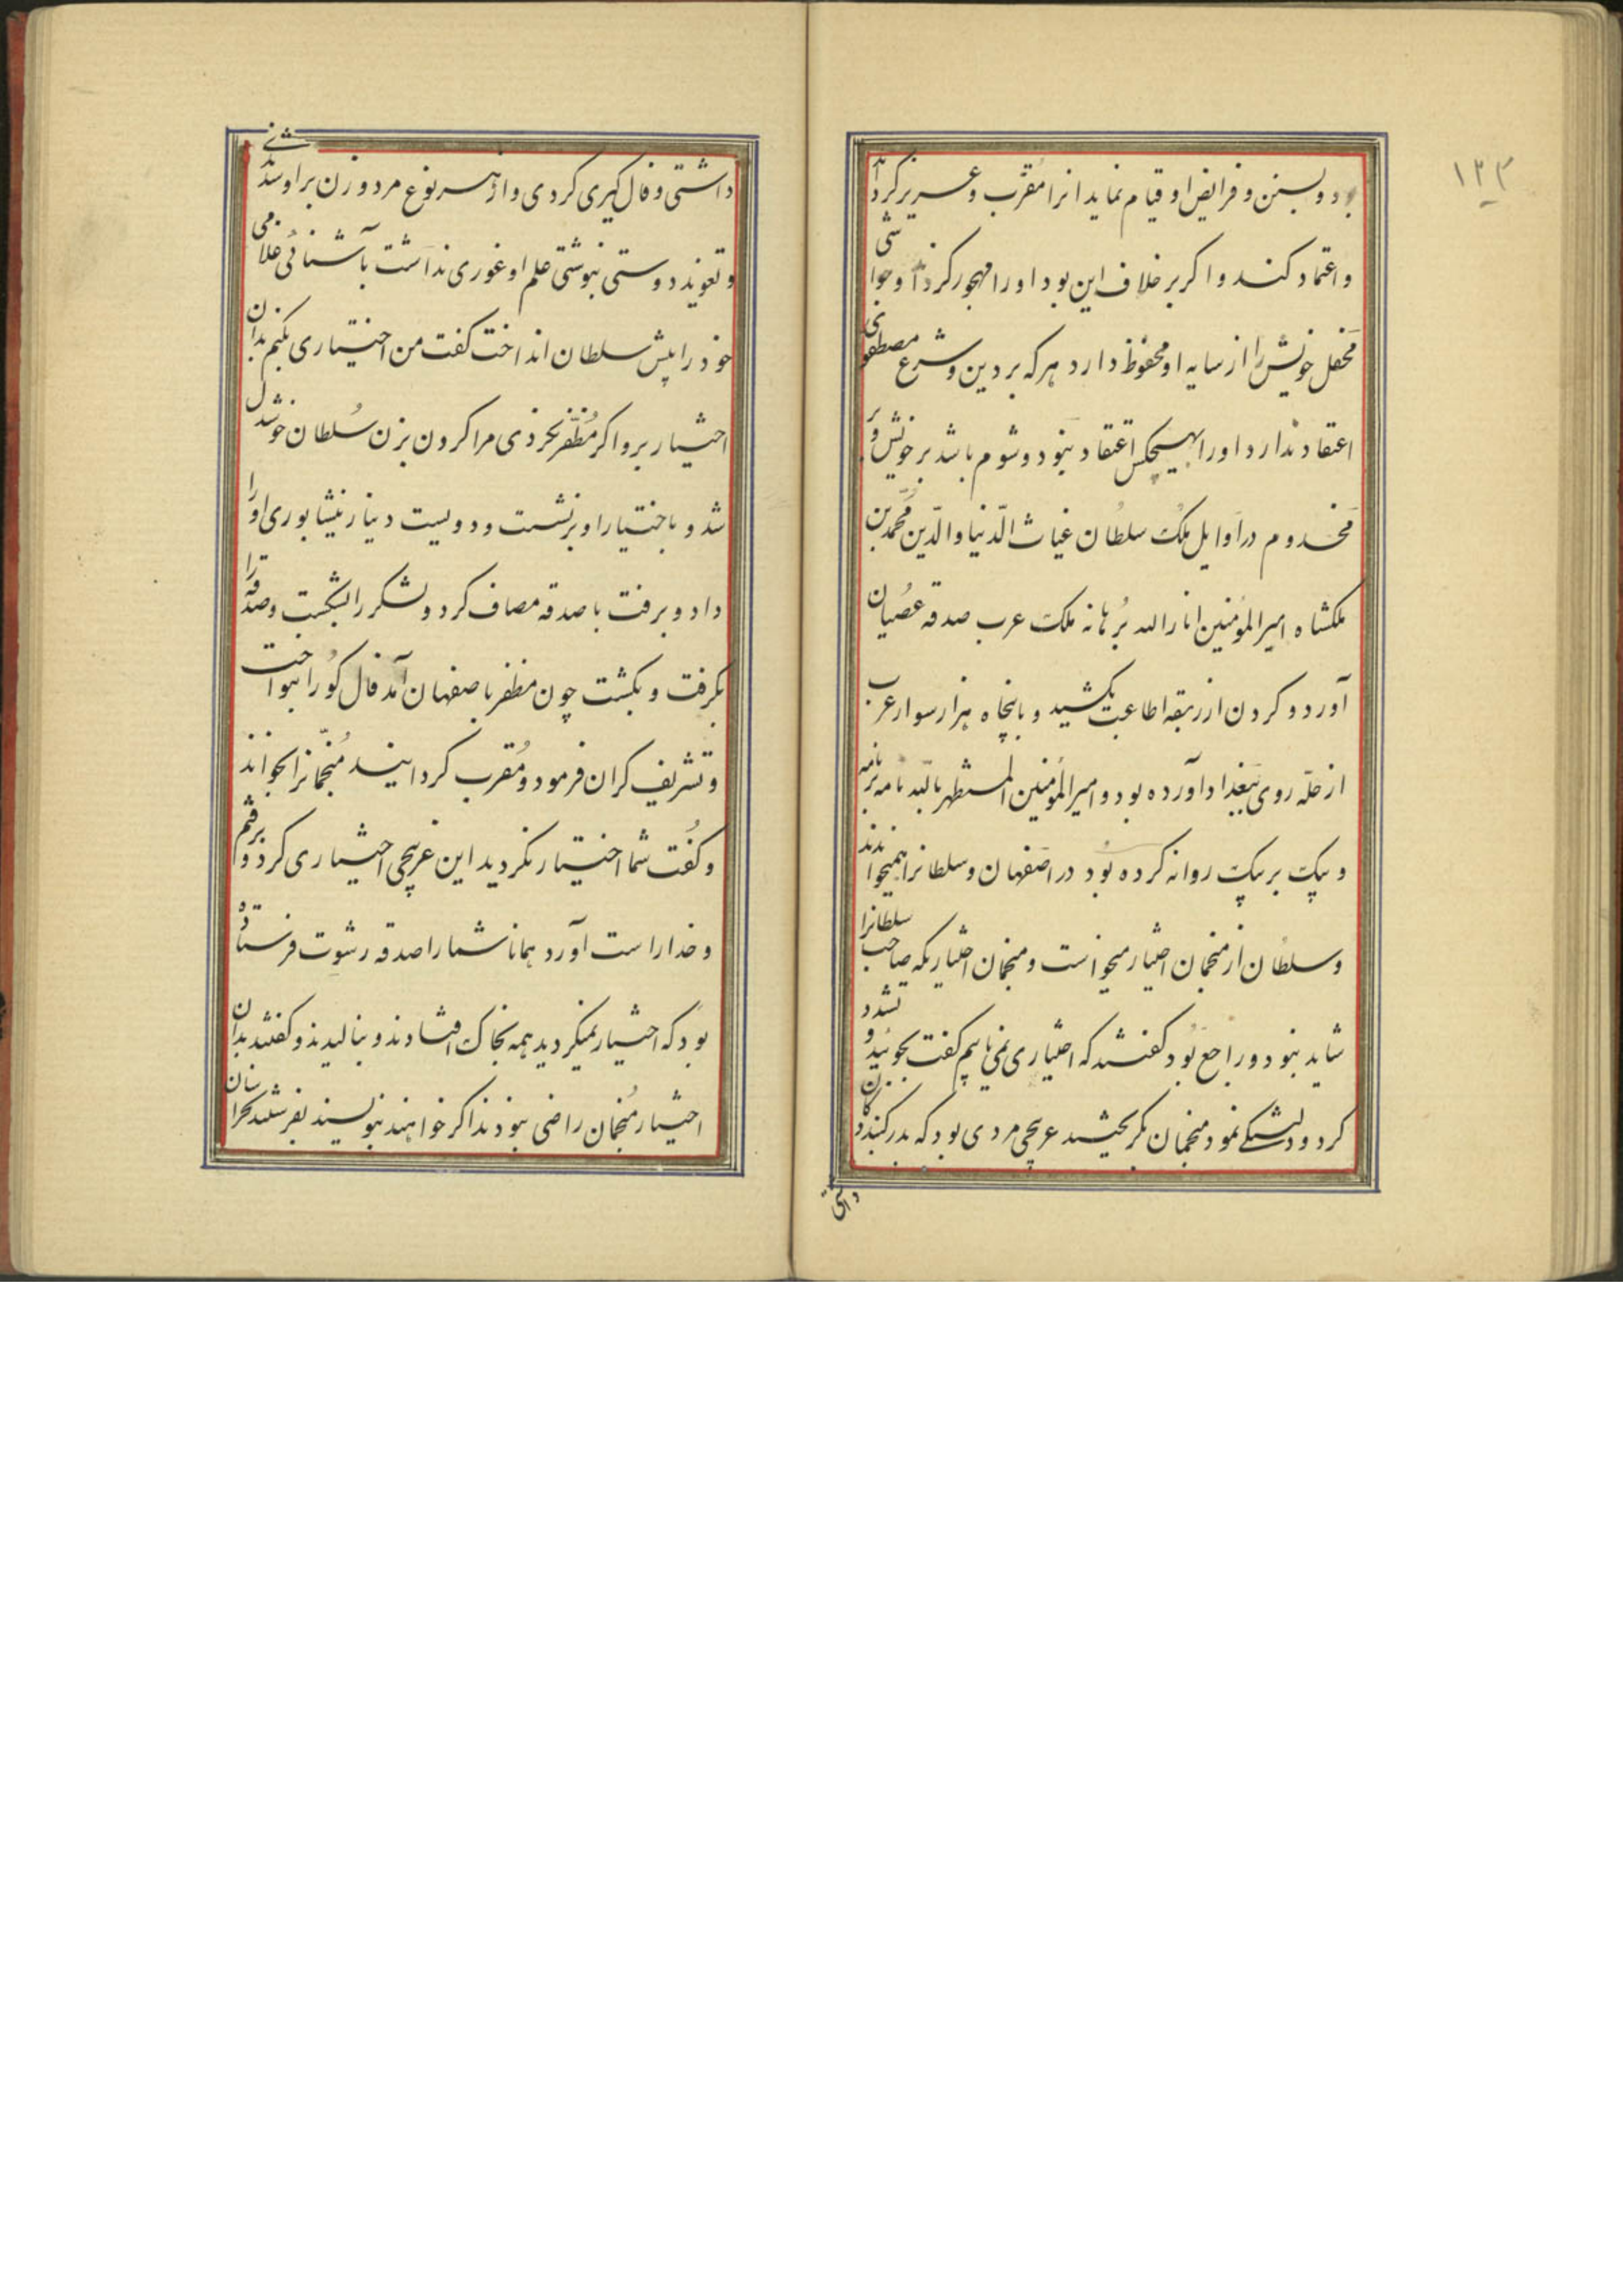 ۱۳۴
بود و بسنن و فرایض او قیام نماید انرا مقرب و عزیز گرداند
و اعتماد کند و اگر بر خلاف این بود او را مهجور گرداند و حواشی
محفل خویش را از سایه او محفوظ دارد هر که بر دین و شرع مصطفوی
اعتقاد ندارد او را بهیچکس اعتقاد نبود و شوم باشد بر خویش و بر
مخدوم در اوایل ملک سلطان غیاث الدنیا والدین محمد بن
ملکشاه امیر المؤمنین انار الله برهانه ملک عرب صدقه عصیان
آورد و گردن از ربقه اطاعت بکشید و با پنجاه هزار سوار عرب
از حله روی ببغداد آورده بود و امیر المؤمنین المستظهر بالله نامه بر نامه
و پیک بر پیک روانه کرده بود در اصفهان و سلطانرا همیخواندند
و سلطان از منجمان اختیار میخواست و منجمان اختیاریکه صاحب سلطانرا
شاید نبود و راجع بود گفتند که اختیاری نمی یابیم گفت بجوئید و تشدد
کرد و دلتنگی نمود منجمان بگریختند غریچی مردی بود که بدر گنبد دکان
داشتی
داشتی و فال گیری کردی و از هر نوع مرد و زن بر او شدندی
و تعویذ دوستی نبوشتی علم او غوری نداشت بآشنائی غلامی
خود را پیش سلطان انداخت گفت من اختیاری بکنم بدان
اختیار برو اگر مظفر نگردی مرا گردن بزن سلطان خوشدل
شد و باختیار او برنشست و دویست دینار نیشابوری او را
داد و برفت با صدقه مصاف کرد و لشکر را بشکست و صدقه را
بگرفت و بکشت چون مظفر باصفهان آمد فال گو را بنواخت
و تشریف گران فرمود و مقرب گردانید منجمانرا بخواند
و گفت شما اختیار نکردید این غریچی اختیاری کرد و برفتم
و خدا راست آورد همانا شما را صدقه رشوت فرستاده
بود که اختیار نمیکردید همه بخاک افتادند و بنالیدند و گفتند بدان
اختیار منجمان راضی نبودند اگر خواهند بنویسند بفرستند بخراسان